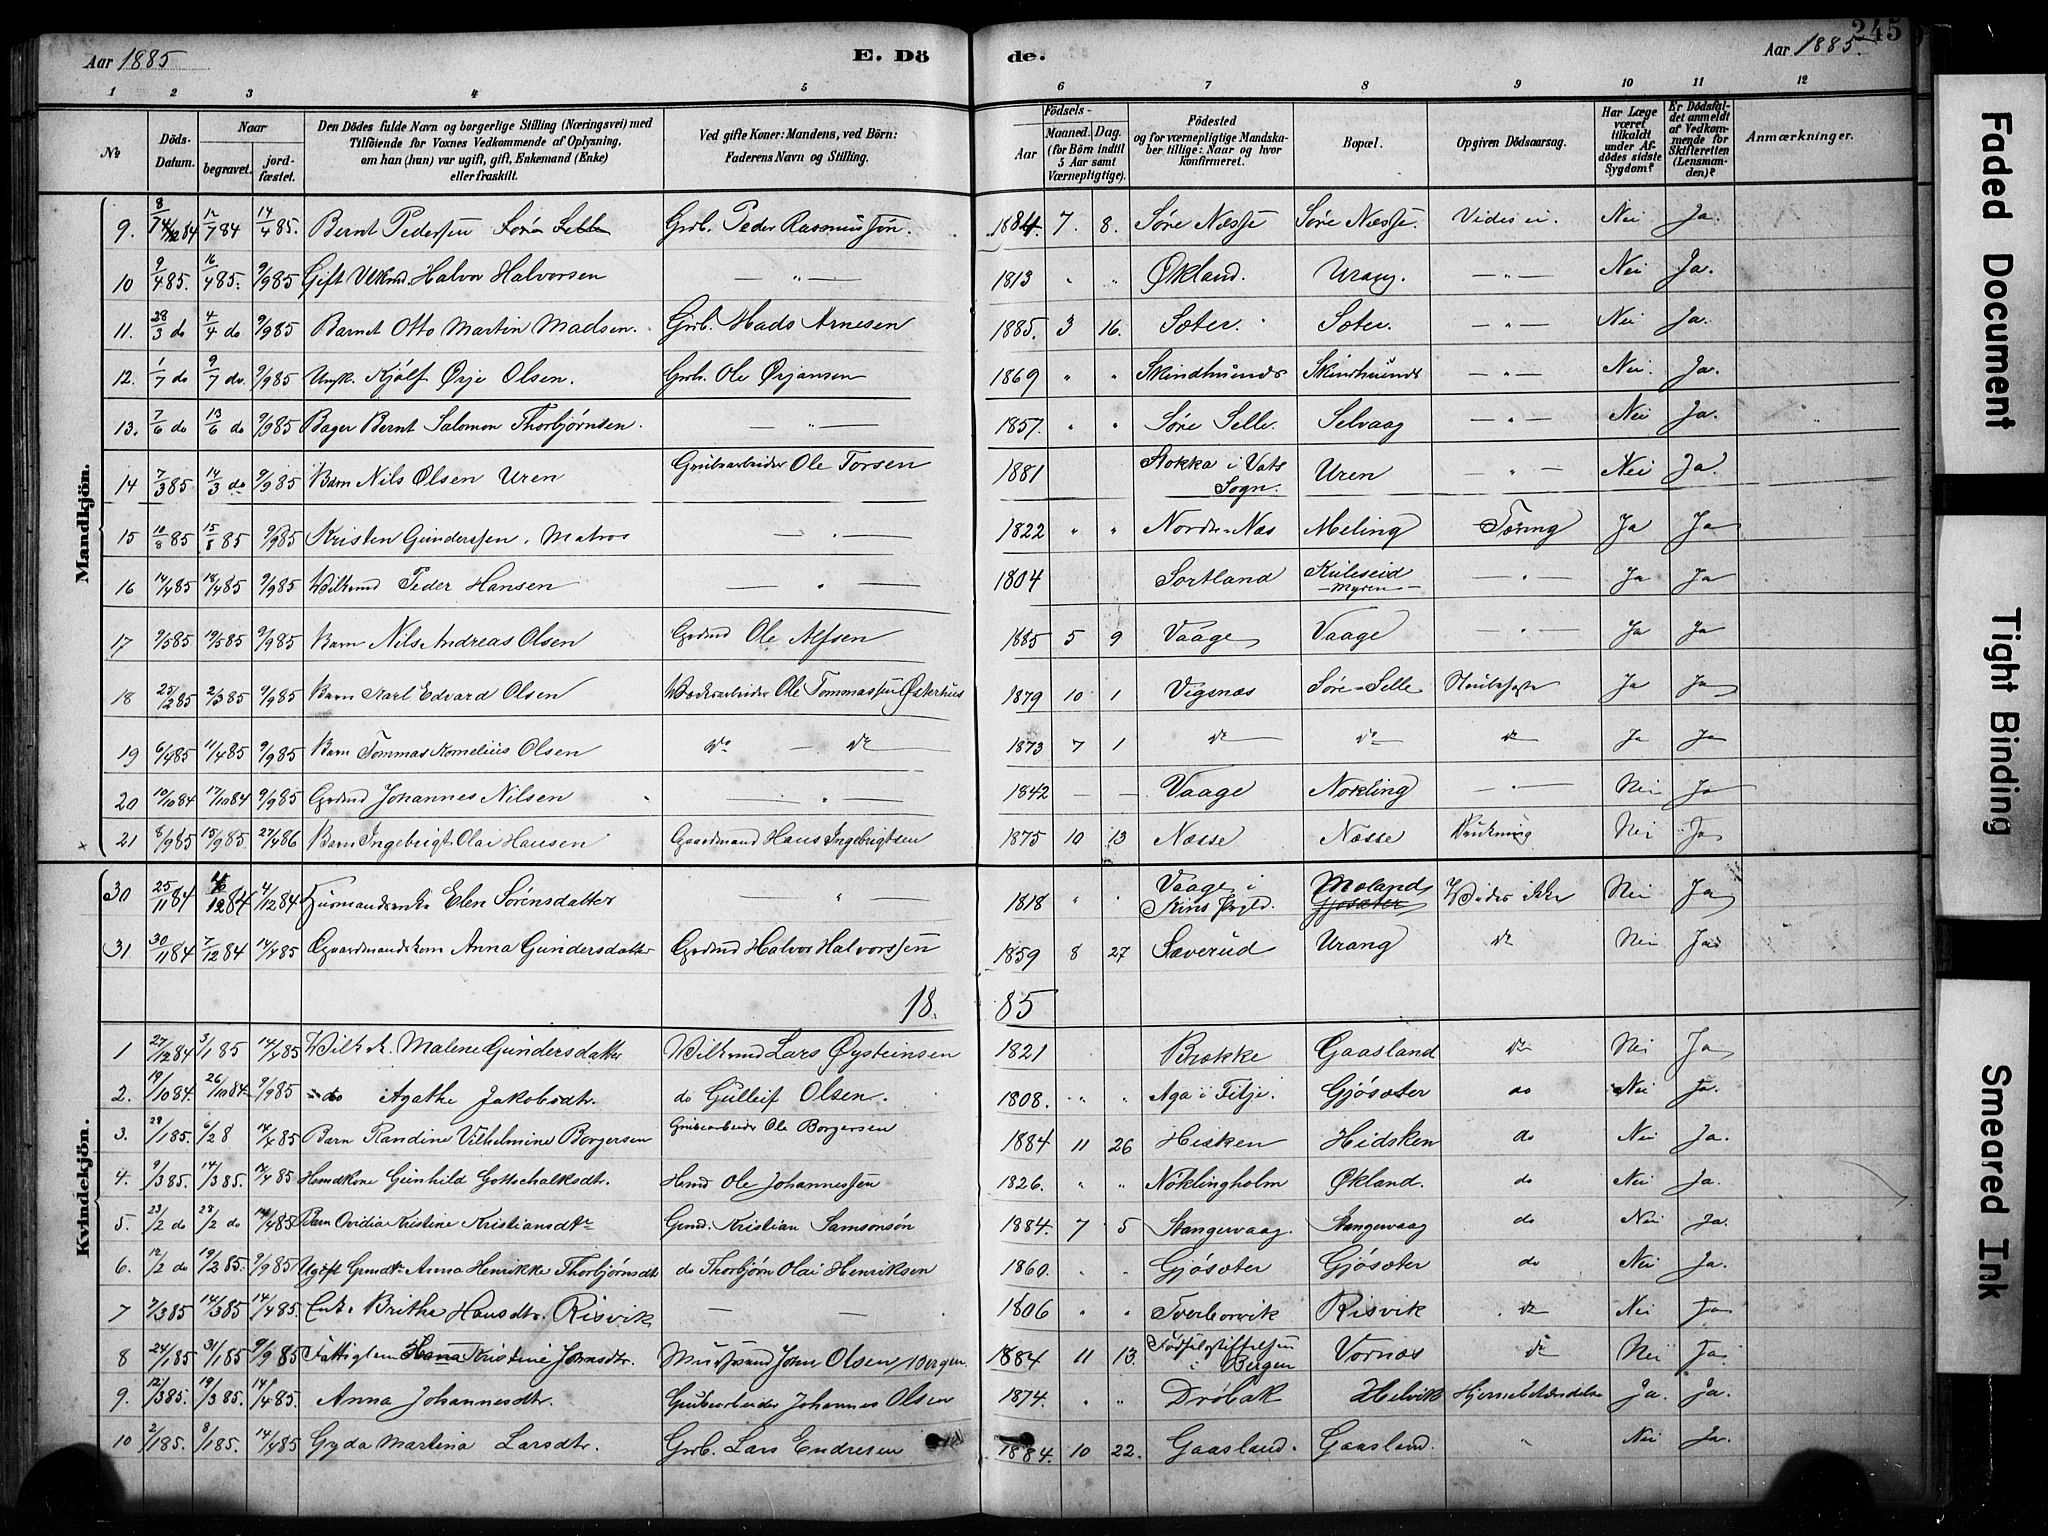 245
Aar 1885 E. Dö de. Aar 1885.
1 2 3 4 5 6 7 8 9 10 11 12
No Döds-Datum. Naar begravet. jord-fæstet. Den Dödes fulde Navn og borgerlige Stilling (Næringsvei) med Tilföiende for Voxnes Vedkommende af Oplysning, om han (hun) var ugift, gift, Enkemand (Enke) eller fraskilt. Ved gifte Koner: Mandens, ved Börn: Faderens Navn og Stilling. Födsels- Aar Maaned. Dag. (for Börn indtil 5 Aar samt Værnepligtige). Födested og for værnepligtige Mandska-ber tillige: Naar og hvor konfirmeret. Bopæl. Opgiven Dödsaarsag. Har Læge været tilkaldt under Af-dödes sidste Sygdom? Er Dödsfal-det anmeldt af Vedkom-mende for Skifteretten (Lensman-den)? Anmærkninger.
Mandkjön.
9. 12/7 84 14/4 85. Bernt Pedersen Grb. Peder Rasmussøn. 1884. 7. 8. Søre Næsse Søre Næsse. Vides ei. Nei Ja.
10 9/4 85. 16/4 85. 9/9 85 Gift Halvor Halvorsen — " — 1813 " " Økland. Urang. — " — Nei Ja.
11. 28/3 do 4/4 do 9/9 85 Barnet Otto Martin Madsen. Grb. Mads Arnesen 1885. 3 16. Sæter. Sæter. — " — Nei Ja.
12. 1/7 do 9/7 do. 9/9 85 Ungk. Kjølf Ørje Olsen. Grb. Ole Ørjansen 1869 " " — " — Nei. Ja.
13. 7/6 do 13/6 do 9/9 85 Bager Bernt Salomon Thorbjørnsen. — " — 1857. " " Søre Selle. Selvaag — " — Nei Ja.
14 7/3 85 14/3 do 9/9 85 Barn Nils Olsen Uren Grubearbeider Ole Torsen 1881 Stokka i Vats Sogn. Uren — " — Nei Ja.
15 10/8 85 15/8 85 9/9 85 Kristen Gunderssen, Matros — " — 1822 " " Nordre-Næs Meling Tæring Ja Ja
16 14/4 85 18/4 85 9/9 85 Peder Hansen — " — 1804 Sortland Kuleseid Myren — " — Ja Ja
17 9/5 85 19/5 85 9/9 85 Barn Nils Andreas Olsen Grdmd Ole Alfsen 1885 5 9 Vaage Vaage — " — Ja Ja
18 25/2 85 2/3 85 9/9 85 Barn Karl Edvard Olsen Ole Tommassen Østerhus 1879 10 1 Vigsnæs Søre-Selle Ja Ja
19 6/4 85 11/4 85 9/9 85 Barn Tommas Kornelius Olsen do — do 1873 7 1 do do do Ja Ja
20 10/10 84 17/10 84 9/9 85 Grdmd Johannes Nilsen — " — 1842 — — Vaage Nokling — " — Nei Ja
21 8/9 85 15/9 85 27/4 86 Barn Ingebrigt Olai Hansen Gaardmand Hans Ingebrigtsen 1875 10 13 Næsse Næsse Drukning Nei Ja
30 25/11 84 4/12 84 Elen Sørensdatter " 1818 " " Vaage i Moland Gjøsæter Vides ikke Nei Ja
31 30/11 84 7/12 84 14/4 85 Gaardmandskone Anna Gundersdatter Grdmd Halvor Halvorssen 1859 8 27 Sæverud Urang do Nei Ja
18. 85
Kvindekjön.
1 27/12 84 3/1 85 14/4 85 Malene Gundersdatter Lars Øysteinsen 1821 Brekke Gaasland do Nei Ja
2. 19/10 84 26/10 84. 9/9 85 do Agathe Jakobsdtr. do Gulleif Olsen. 1808. " " Aga i Fitje. Gjøsæter do Nei Ja.
3. 29/1 85. 6/2 8 14/4 85 Barn Randine Vilhelmine Borgersen Grubearbeidr Ole Borgersen 1884 11 26 Hisken Hidsken do Nei Ja.
4. 9/3 85. 14/3 85. 14/4 85 Gunhild Gottschalksdtr. Ole Johannessen 1826. " " Nøklingholm Økland. do Nei Ja.
5. 23/2 do 28/2 do 14/4 85 Barn Ovidia Kristine Kristiansdtr Grmd. Kristian Samsonsøn 1884. 7 5 Stangervaag. Stangervaag do Nei Ja.
6. 12/2 do 19/2 85. 9/9 85 Ugift Anna Henrikke Thorbjørnsdt do Thorbjørn Olai Henriksen 1860. " " Gjøsæter Gjøsæter do Nei Ja.
7 7/3 85 14/3 85 14/4 85. Enke Brithe Hansdtr. Risvik — — 1806 " " Tverborvik Risvik do Nei Ja
8 24/1 85 31/1 85 9/9 85 Fattiglem Kristine Johnsdtr. John Olsen, Bergen 1884 11 13. Fødselsstiftelsen i Bergen Vornæs do Nei Ja
9. 12/3 85. 19/3 85. 14/4 85. Anna Johannesdtr. Grubearbeider Johannes Olsen 1874. " " Drøbak Helvik Hjernebetændelse Ja. Ja.
10 2/1 85. 8/1 85. 14/4 85 Gyda Martina Larsdtr. Grb. Lars Endresen 1884. 10 22. Gaasland. Gaasland. " Nei Ja.
Faded Document
Tight Binding
Smeared Ink